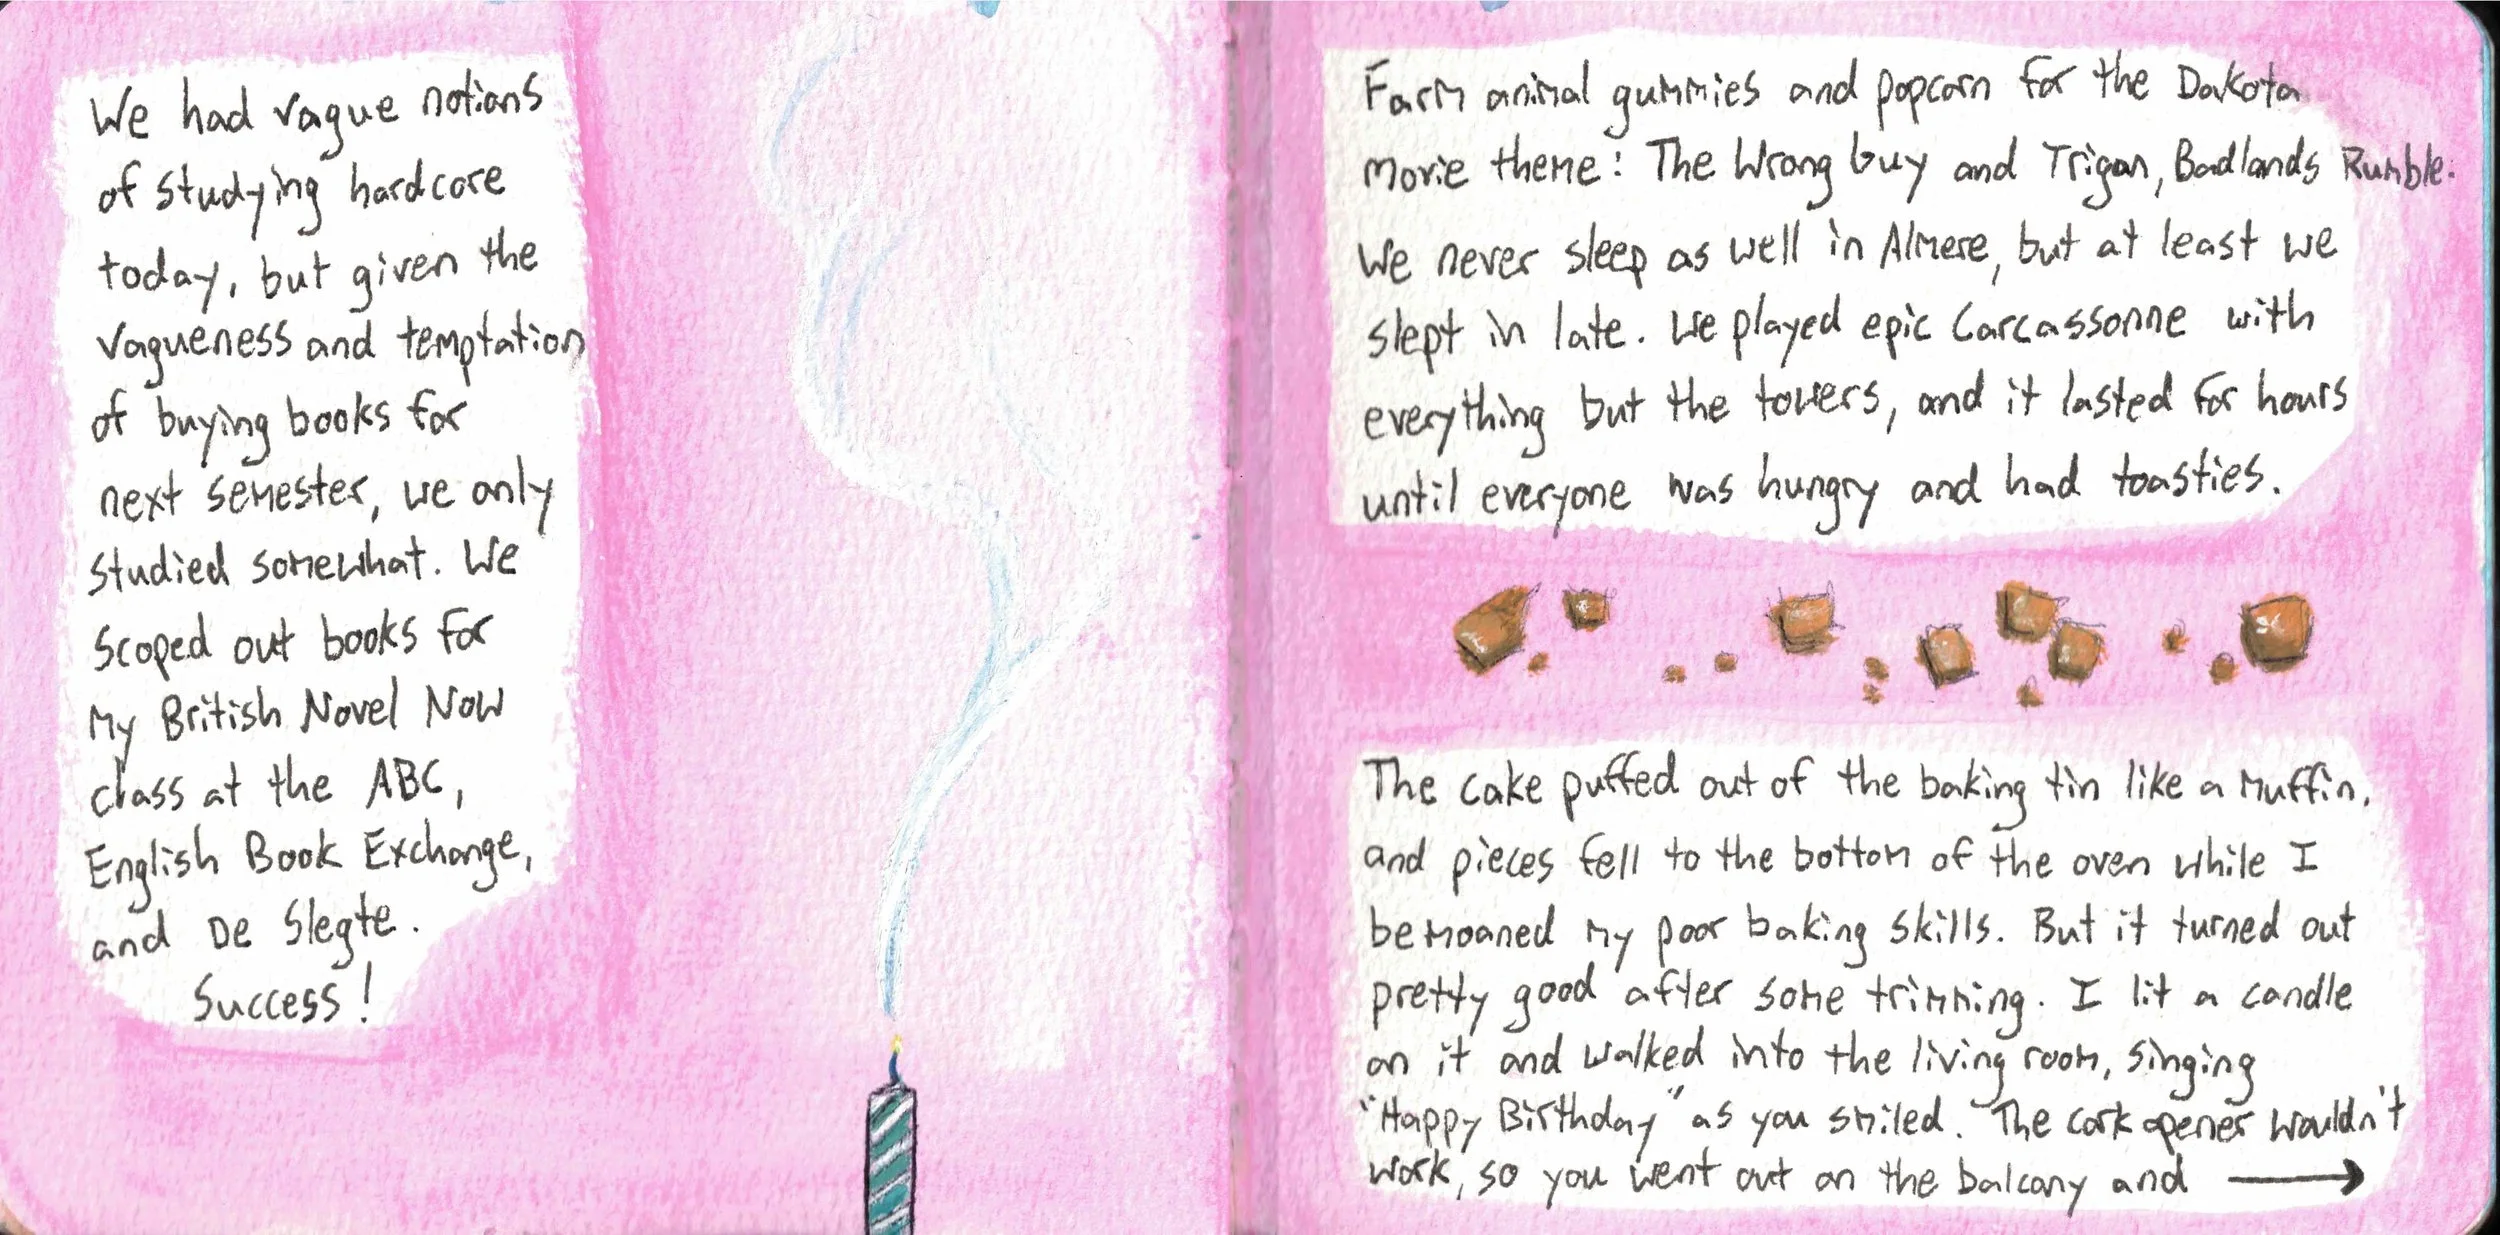 We had vague notions
of studying hardcore
today, but given the
vagueness and temptation
of buying books for
next semester, we only
studied somewhat. We
scoped out books for
my British Novel Now
class at the ABC,
English Book Exchange,
and De Slegte.
Success!
Farm animal gummies and popcorn for the Dakota
movie theme: The Wrong Guy and Trigan, Badlands Rumble.
We never sleep as well in Almere, but at least we
slept in late. We played epic Carcassonne with
everything but the towers, and it lasted for hours
until everyone was hungry and had toasties.
The cake puffed out of the baking tin like a muffin,
and pieces fell to the bottom of the oven while I
bemoaned my poor baking skills. But it turned out
pretty good after some trimming. I lit a candle
on it and walked into the living room, singing
"Happy Birthday" as you smiled. The cork opener wouldn't
work, so you went out on the balcony and →